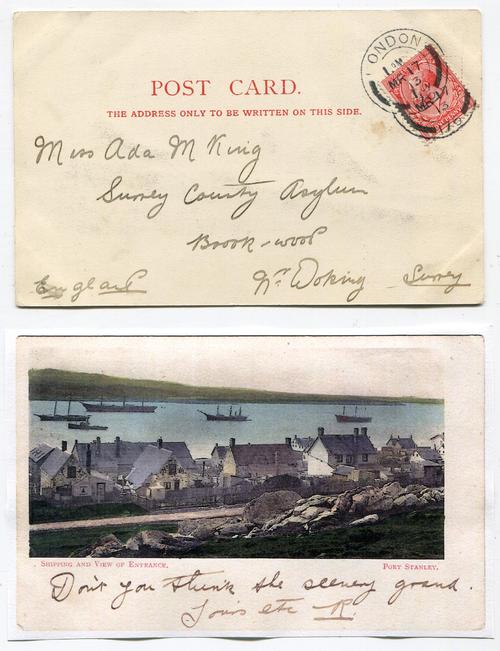 LONDON
1 PM
MR 17
13
POST CARD.
THE ADDRESS ONLY TO BE WRITTEN ON THIS SIDE.
Miss Ada M King
Surrey County Asylum
Brook-wood
Nr. Woking Surrey
England
SHIPPING AND VIEW OF ENTRANCE.
PORT STANLEY.
Don't you think the scenery grand.
Yours etc R.